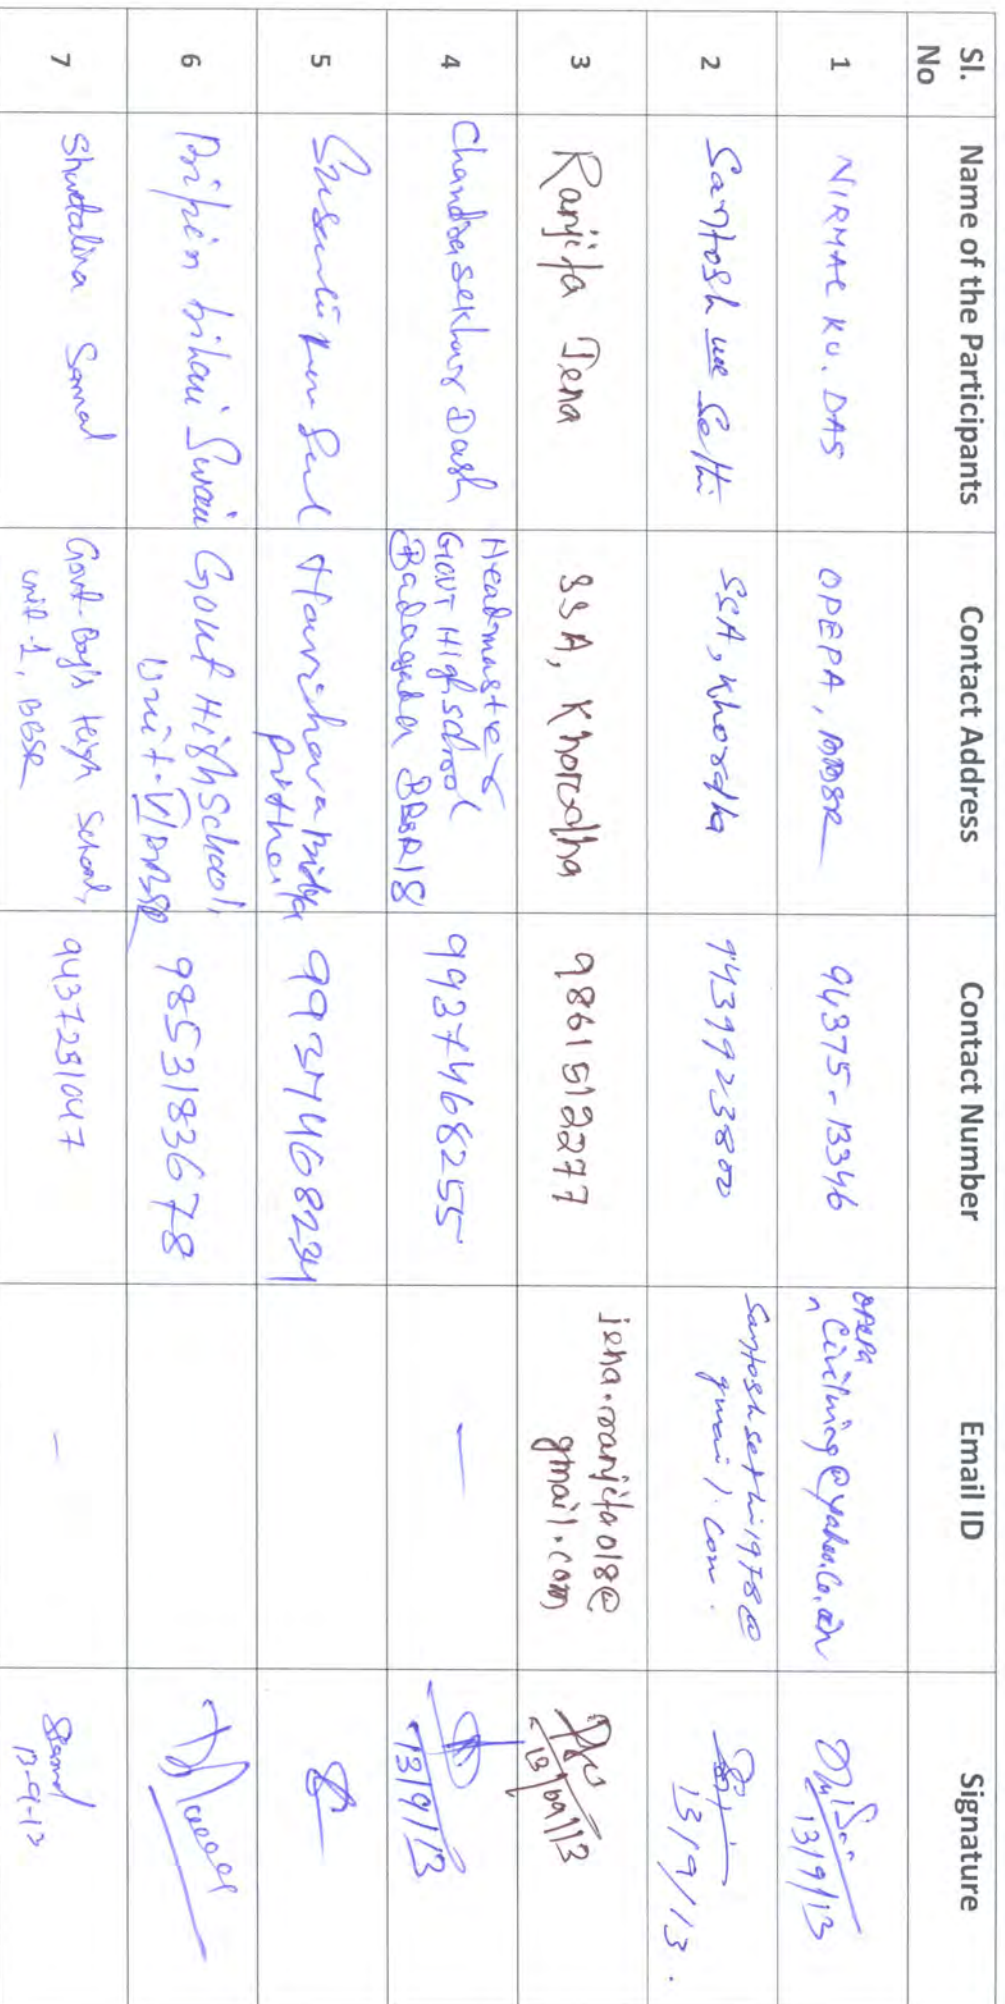 Sl. No
Name of the Participants
Contact Address
Contact Number
Email ID
Signature
1
NIRMAL KU. DAS
OPEPA, BBSR
94375-13346
13/9/13
2
Santosh Sethi
SSA, Khordha
9439923800
santoshsethi1978@
gmail.com.
13/9/13.
3
Ranjita Jena
SSA, Khordha
9861512277
jena.ranjita018@
gmail.com
13/09/13
4
Chandrasekhar Dash
Headmaster
Govt High School
Badagada BBSR18
9937468255
—
13/9/13
5
9937468234
6
Bipin bihari Swain
Govt. High School,
Unit-VI, BBSR
9853183678
7
Shwetalina Samal
Govt. Boy's High School,
unit-1, BBSR
9437251047
–
Samal
13-9-13